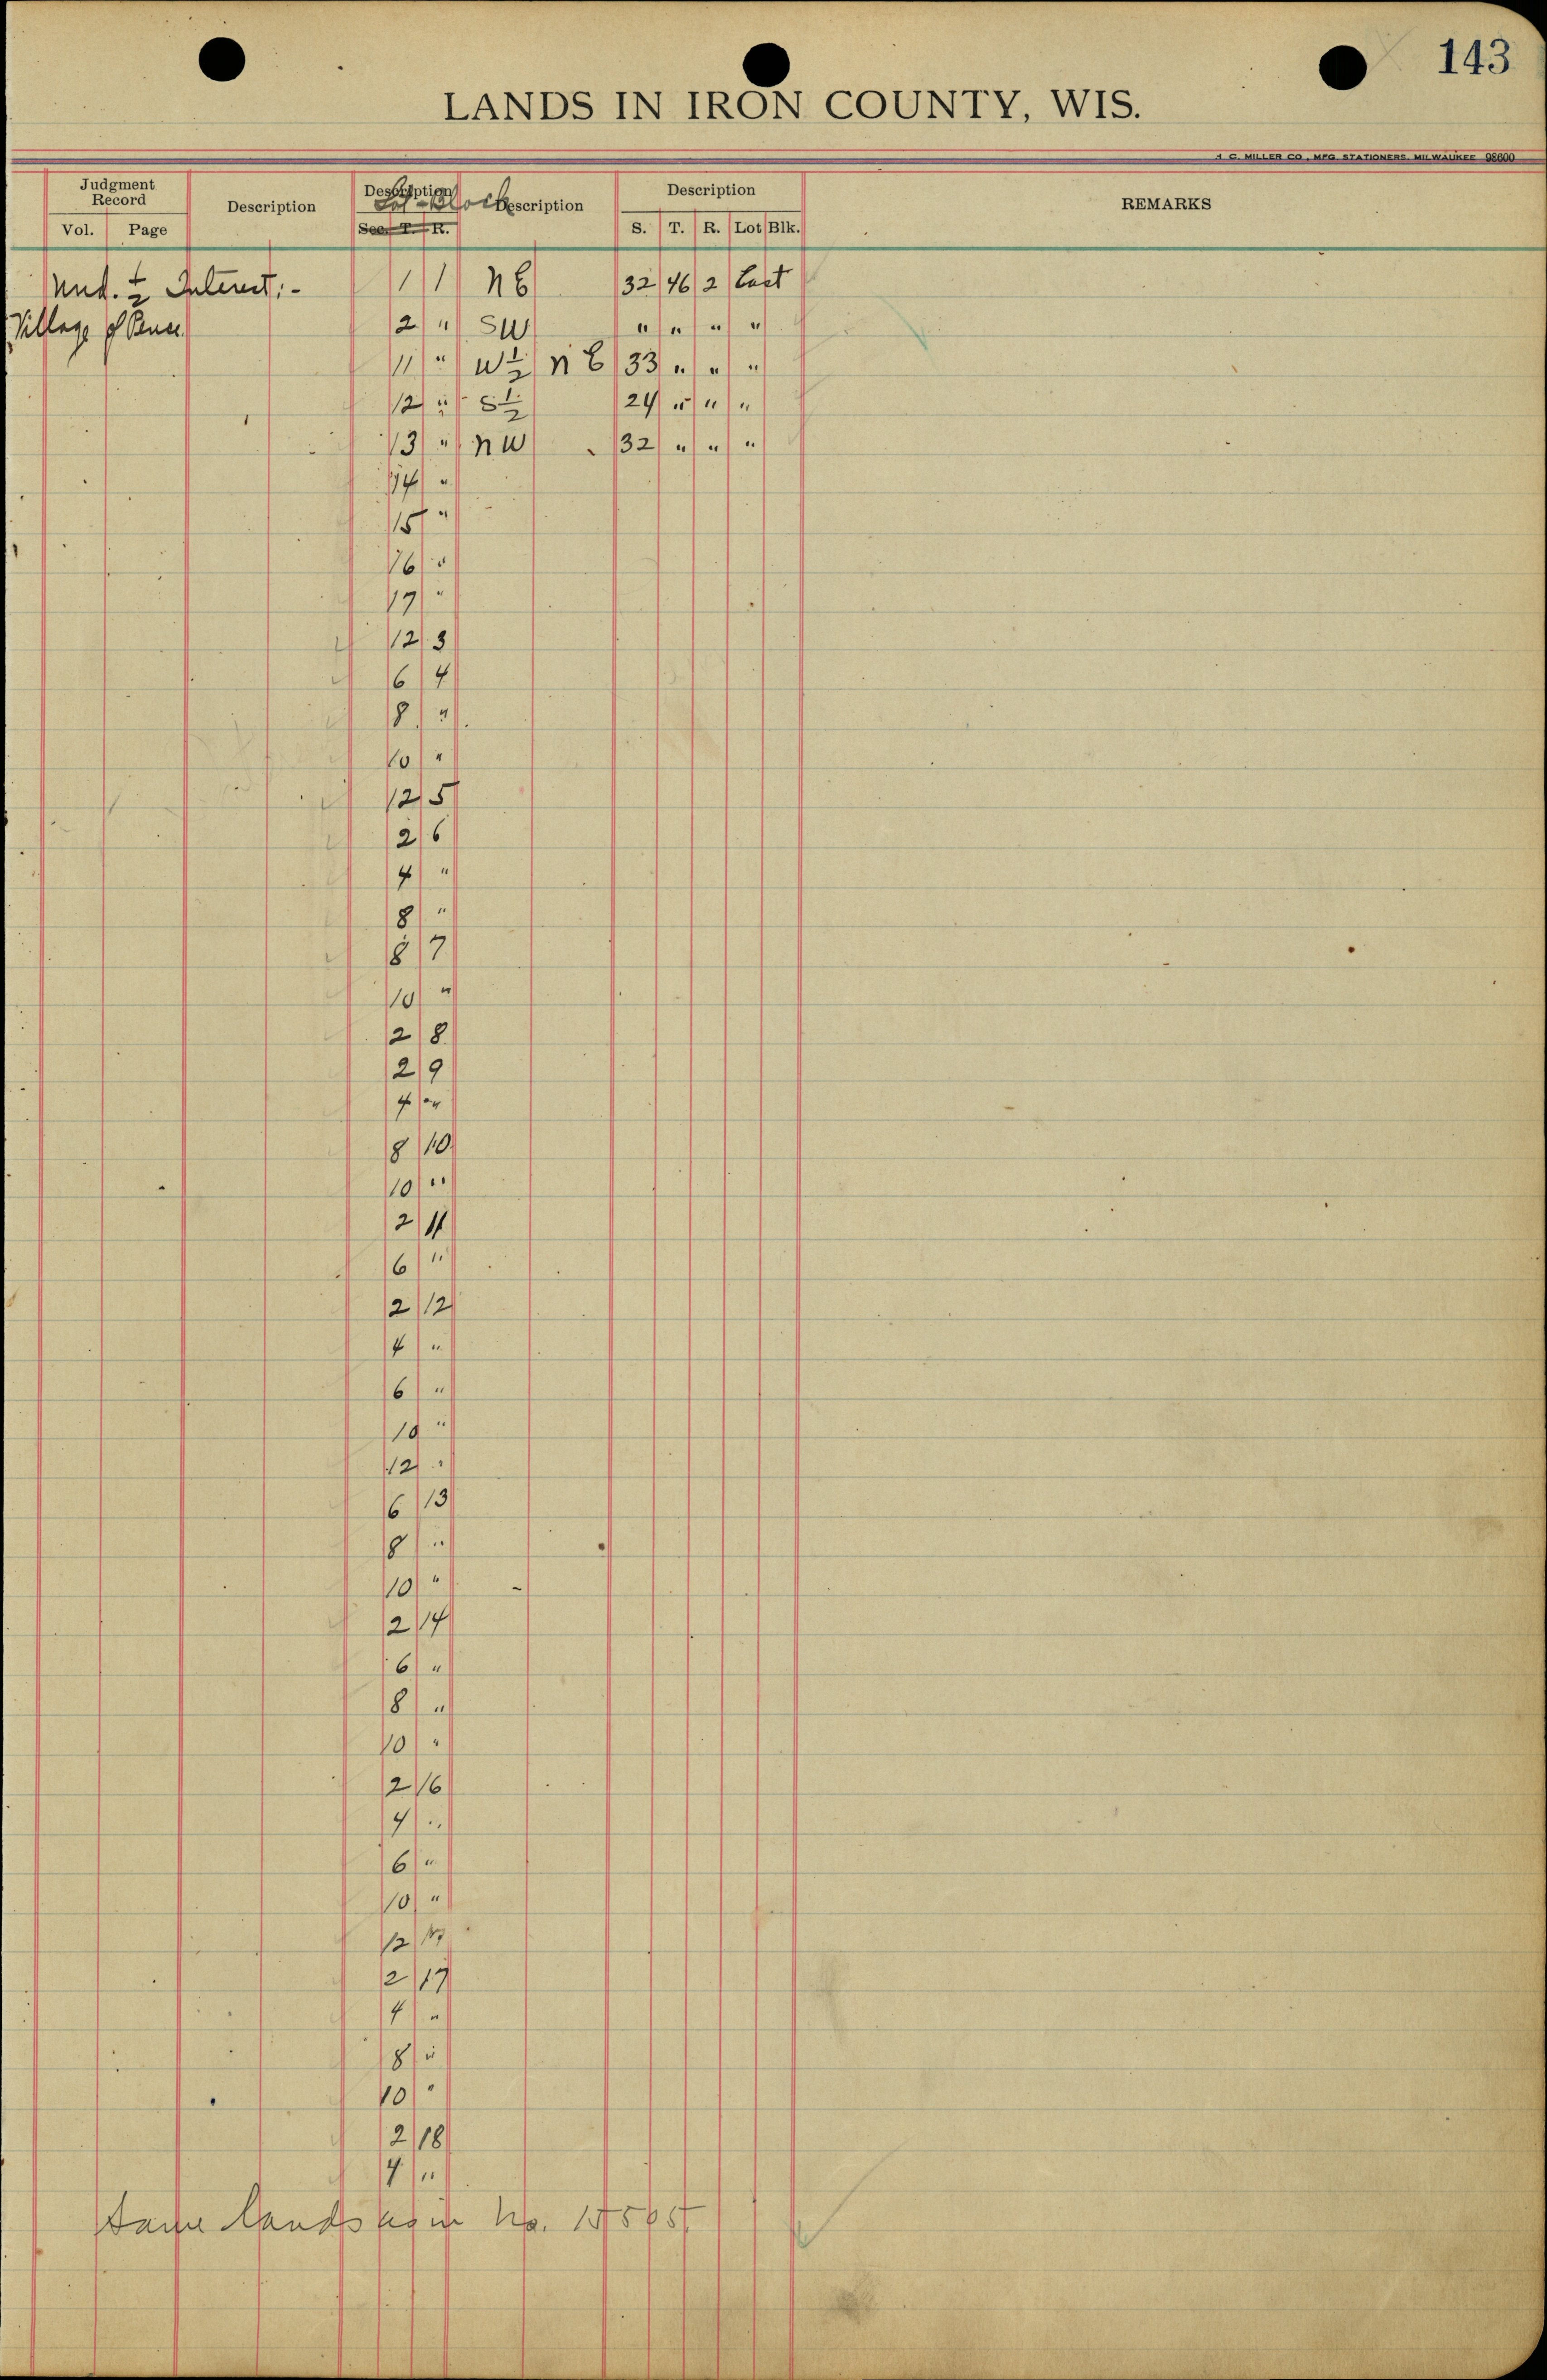 143
LANDS IN IRON COUNTY, WIS.
H. C. MILLER CO., MFG. STATIONERS, MILWAUKEE 98600
Judgment Record Description Description Description Description REMARKS
Lot - Block
Vol. Page Sec. T. R. S. T. R. Lot Blk.
Und. 1/2 Interest:- 1 1 NE 32 46 2 East
Village of Pence 2 " SW " " " "
11 " W 1/2 NE 33 " " "
12 " S 1/2 24 " " "
13 " NW 32 " " "
14 "
15 "
16 "
17 "
12 3
6 4
8 "
10 "
12 5
2 6
4 "
8 "
8 7
10 "
2 8
2 9
4 "
8 10
10 "
2 11
6 "
2 12
4 "
6 "
10 "
12 "
6 13
8 "
10 "
2 14
6 "
8 "
10 "
2 16
4 "
6 "
10 "
12
2 17
4 "
8 "
10 "
2 18
4 "
Same lands as in No. 15505.